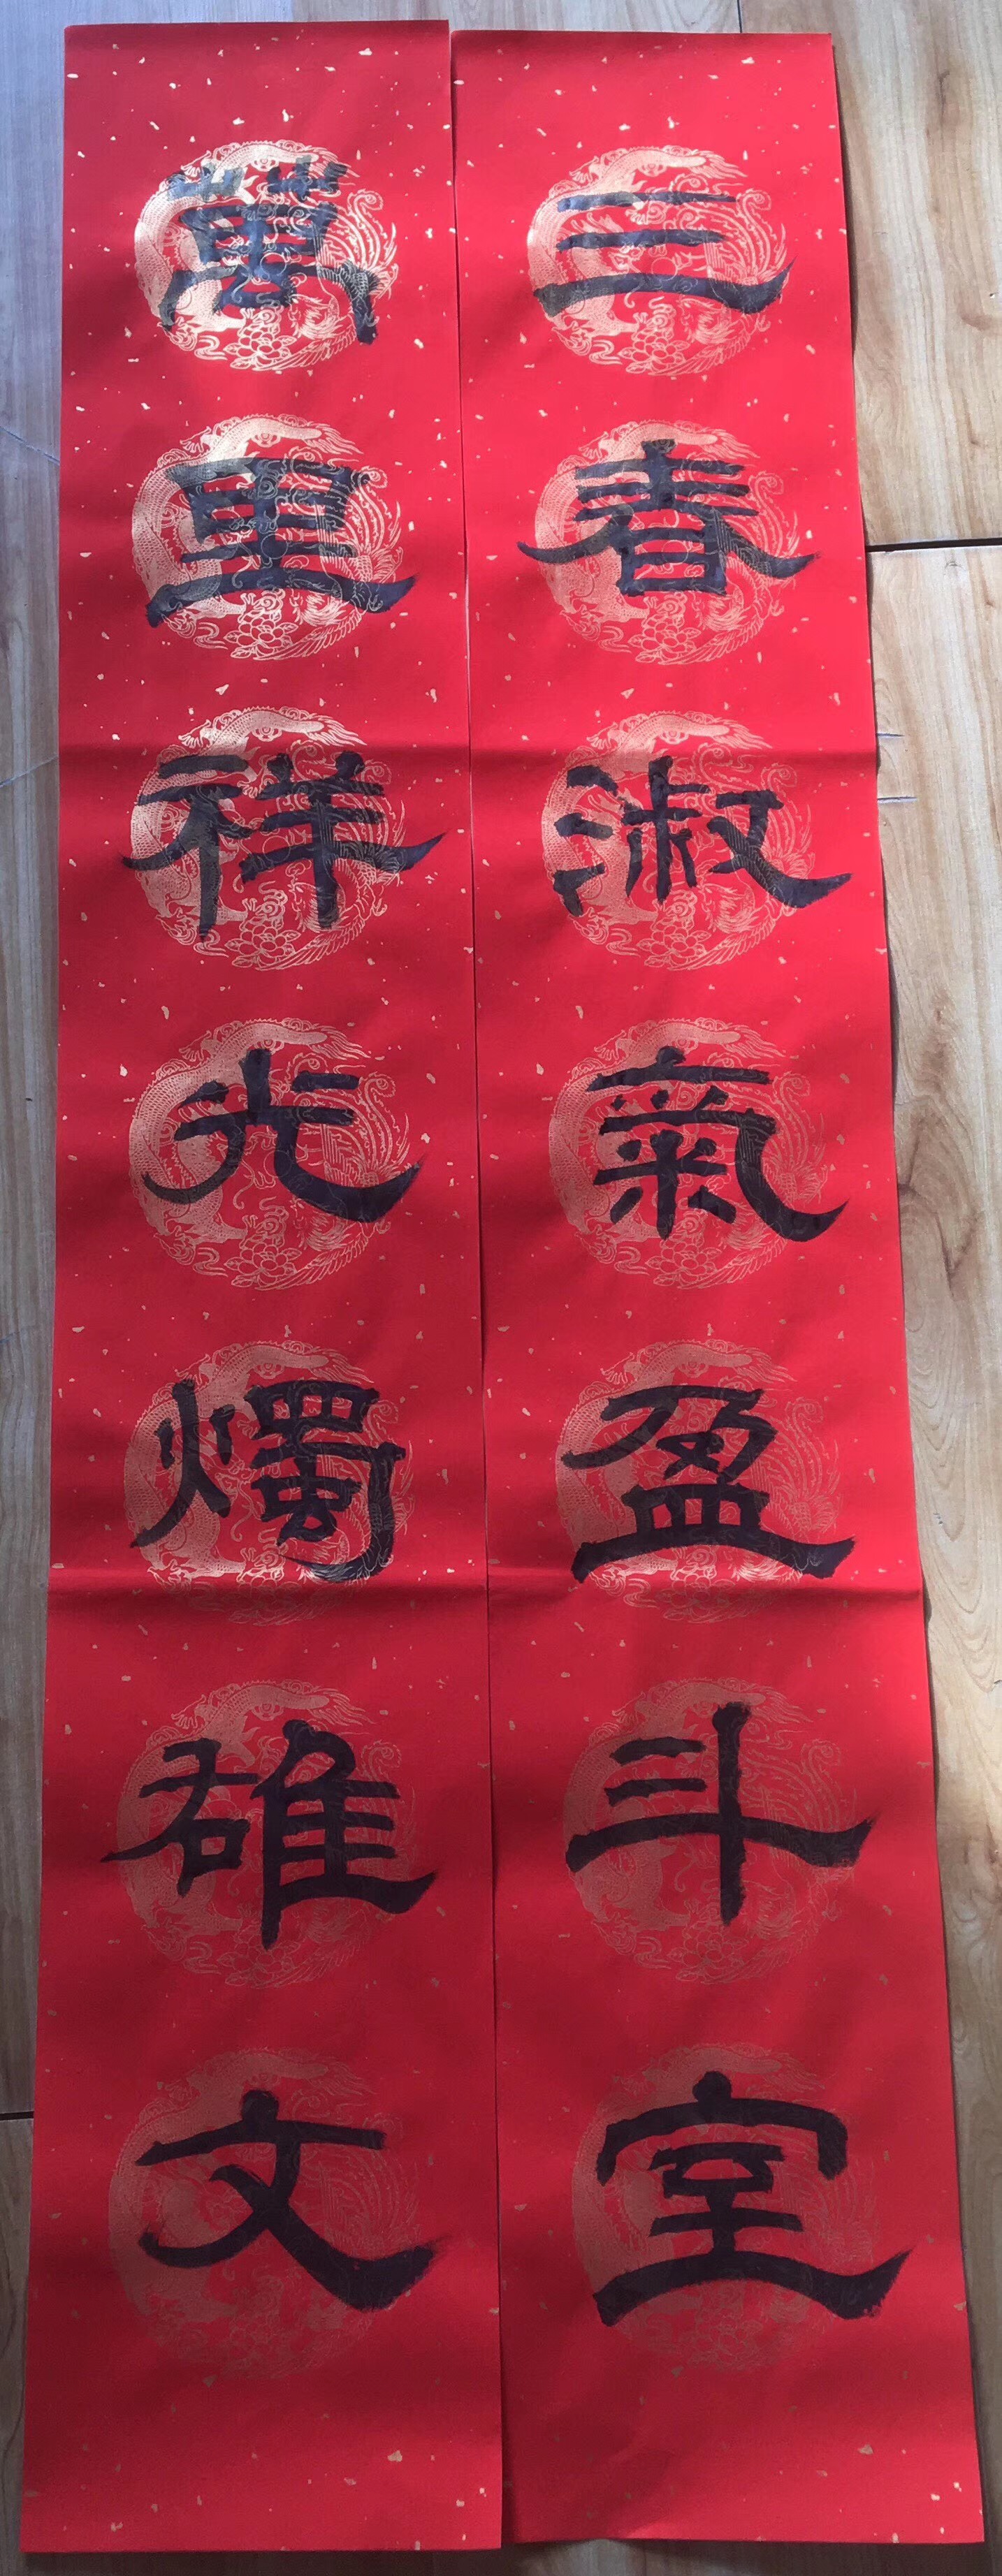 三春淑氣盈斗室
萬里祥光燭雄文